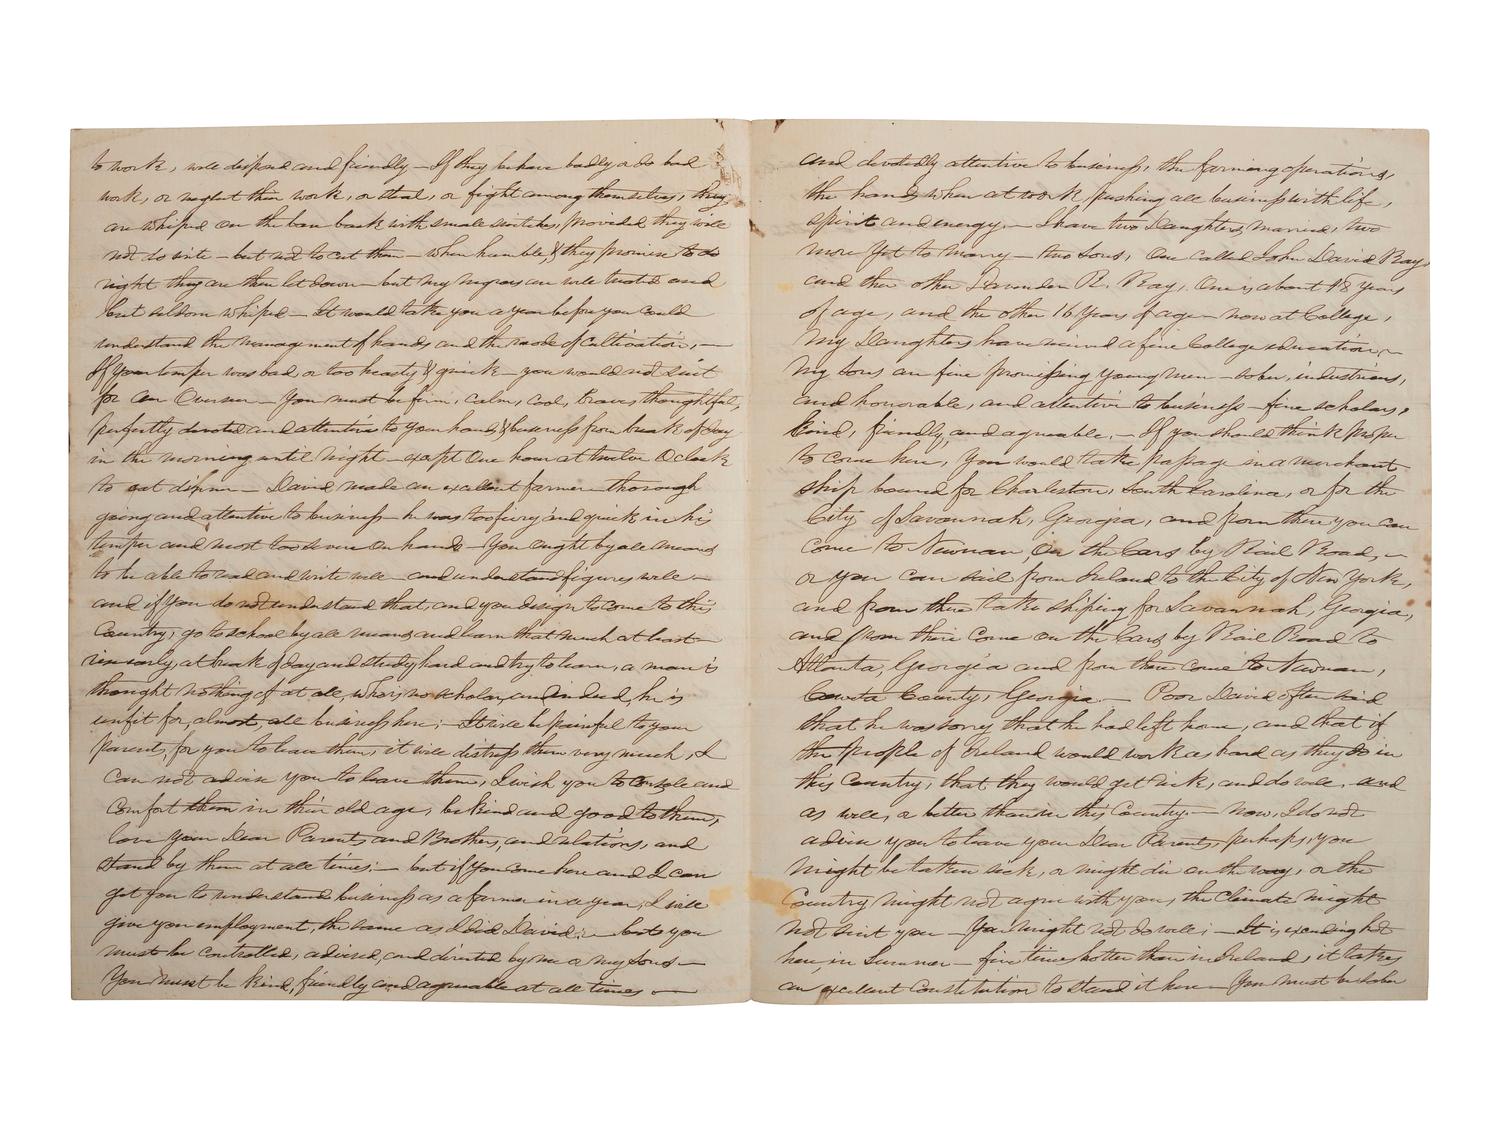 to work, well disposed and friendly – If they behave badly or do bad
work, or neglect their work, or steal, or fight among themselves, they
are whiped on the bare back with small switches, provided they will
not do write – but not to cut them – when humble, & they promise to do
right they are then let down – but my negroes are well treated and
but seldom whiped – It would take you a year before you could
understand the management of hands and the mode of Cultivation, –
If your temper was bad, or too heasty & quick – you would not suit
for an Overseer – You must be firm, calm, cool, brave, thoughtful,
perfectly devoted and attentive to your hands & business from break of day
in the morning until night – except One hour at twelve O clock
to eat dinner – David made an excellent farmer – thorough
going and attentive to business – he was too fiery and quick in his
temper and most too severe on hands – You ought by all means
to be able to read and write well – and understand figures well –
and if you do not understand that, and you design to come to this
Country, go to school by all means and learn that much at least –
rise early, at break of day and study hard and try to learn, a man is
thought nothing of at all, who is no scholar, and indeed, he is
unfit for, almost, all business here; – It will be painful to your
parents, for you to leave them, it will distress them very much, I
can not advise you to leave them, I wish you to Console and
Comfort them in their old age, be kind and good to them,
love your Dear Parents and Brothers, and relations, and
stand by them at all times; – but if you come here and I can
get you to understand business as a farmer in a year, I will
give you employment, the same as I did David; – but you
must be Controlled, advised, and directed by me or my Sons –
You must be kind, friendly and agreeable at all times –
and devotedly attentive to business, the farming operations,
the hands when at work, pushing all business with life,
spirit and energy. – I have two Daughters married, two
more yet to marry – two Sons, One called John David Ray,
and the other Lavender R. Ray, One is about 18 years
of age, and the other 16 Years of age – now at College,
My Daughters have received a fine College education, –
My Sons are fine promissing young men – sober, industrious,
and honorable, and attentive to business – fine scholars,
kind, friendly, and agreable. – If you should think proper
to come here, you would take passage in a merchant
ship bound for Charleston, South Carolina, or for the
City of Savannah, Georgia, and from there you can
come to Newnan, On the Cars by Rail Road, –
or you can sail from Ireland to the City of New York,
and from there take shiping for Savannah, Georgia,
and from there come on the Cars by Rail Road to
Atlanta, Georgia and from there come to Newnan,
Coweta County, Georgia. – Poor David often said
that he was sorry that he had left home, and that if
the people of Ireland would work as hard as they do in
this Country, that they would get rich, and do well, and
as well, or better than in this Country. – now, I do not
advise you to leave your Dear Parents, perhaps, you
might be taken sick, or might die on the way, or the
Country might not agree with you, the Climate might
not suit you – You might not do well; – It is exceeding hot
here, in Summer – five times hotter than in Ireland, it takes
an excellent Constitution to stand it here – You must be sober